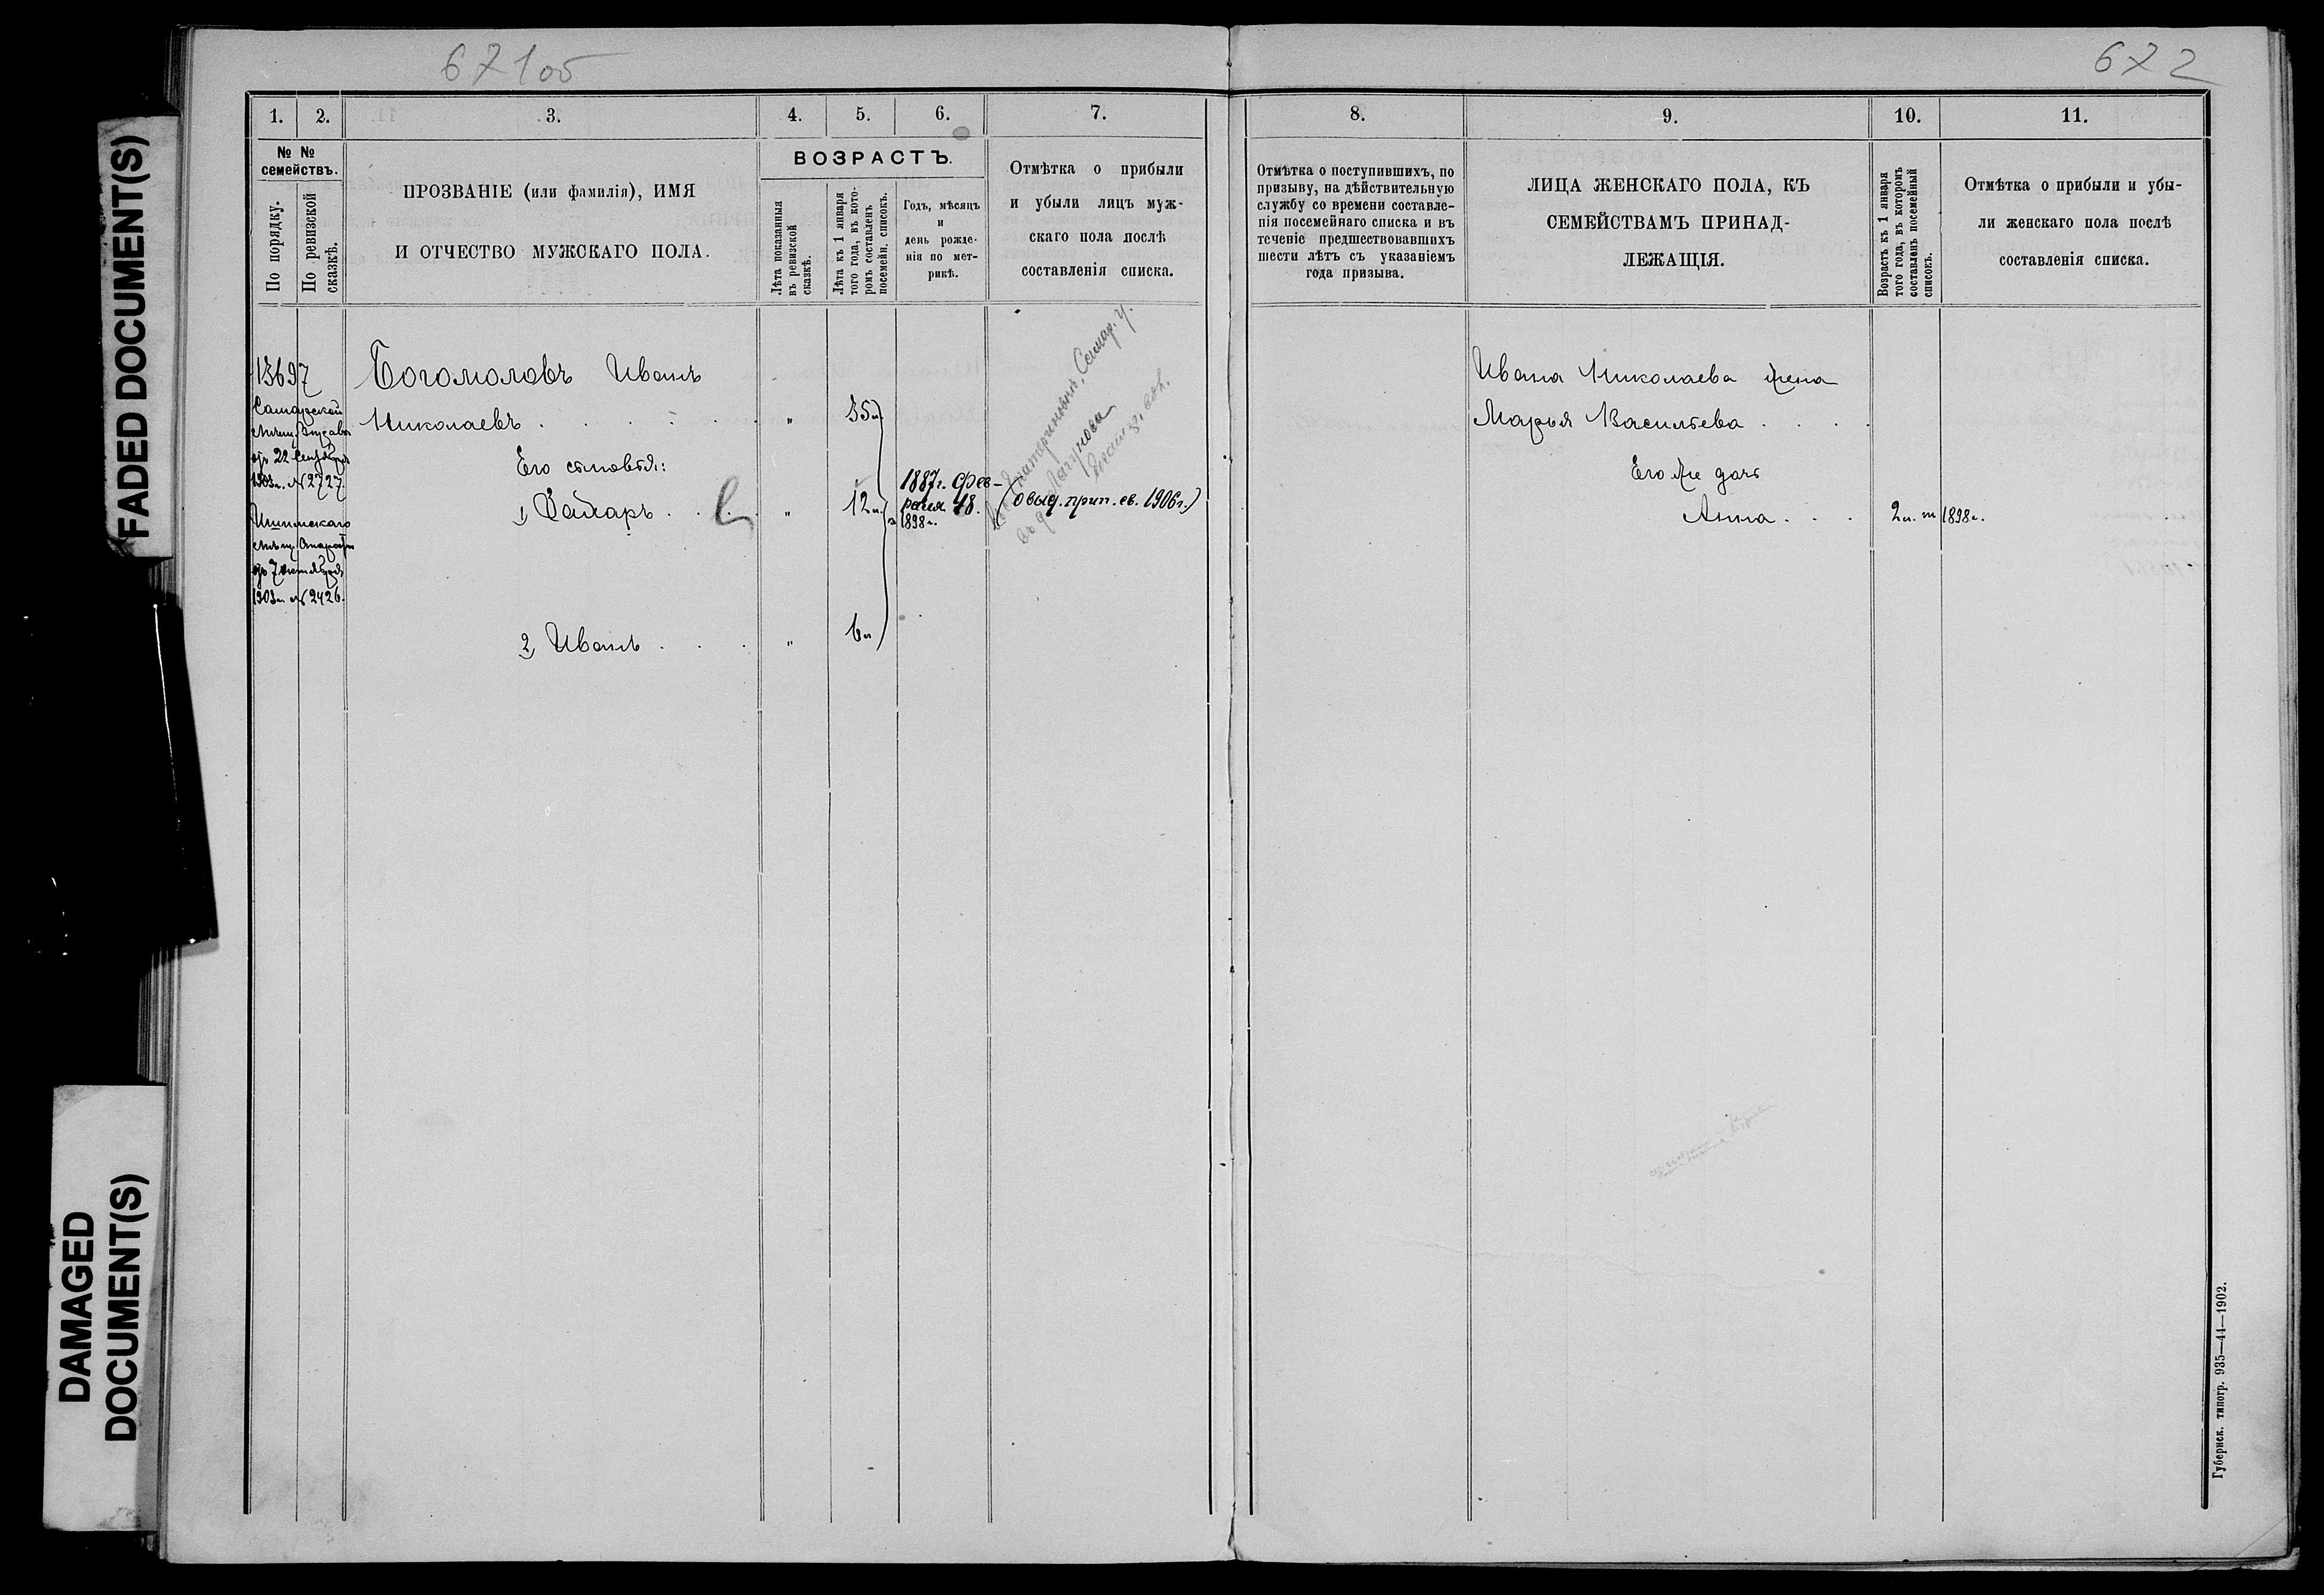 FADED DOCUMENT(S)
DAMAGED
DOCUMENT(S)
67105
1.
2.
3.
4.
5.
6.
7.
№ №
семействъ.
По порядку.
По ревизской
сказкѣ.
ПРОЗВАНІЕ (или фамилія), ИМЯ
И ОТЧЕСТВО МУЖСКАГО ПОЛА.
ВОЗРАСТЪ.
Лѣта показанныя
въ ревизской
сказкѣ.
Лѣта къ 1 января
того года, въ кото-
ромъ составленъ
посемейн. списокъ.
Годъ, мѣсяцъ
и
день рожде-
нія по мет-
рикѣ.
Отмѣтка о прибыли
и убыли лицъ муж-
скаго пола послѣ
составленія списка.
13697
Самарской
Мѣщ. Управы
отъ 22 Сентября
1903г. № 2727.
отъ 7
1903г. № 2426.
Богомоловъ Иванъ
Николаевъ . . . . . „ 35л
Его сыновья:
1) Захаръ . . . „ 12л.
1887г. Фев-
раля 18.
1898г.
(овыд. прип. св. 1906г.)
Самар. у.
2) Иванъ . . . „ 6л
672
8.
9.
10.
11.
Отмѣтка о поступившихъ, по
призыву, на дѣйствительную
службу со времени составле-
нія посемейнаго списка и въ
теченіе предшествовавшихъ
шести лѣтъ съ указаніемъ
года призыва.
ЛИЦА ЖЕНСКАГО ПОЛА, КЪ
СЕМЕЙСТВАМЪ ПРИНАД-
ЛЕЖАЩІЯ.
Возрастъ къ 1 января
того года, въ которомъ
составленъ посемейный
списокъ.
Отмѣтка о прибыли и убы-
ли женскаго пола послѣ
составленія списка.
Ивана Николаева жена
Марья Васильева . . . .
Его же дочь
Анна . . . 2л. 1898г.
Губернск. типогр. 935—44—1902.